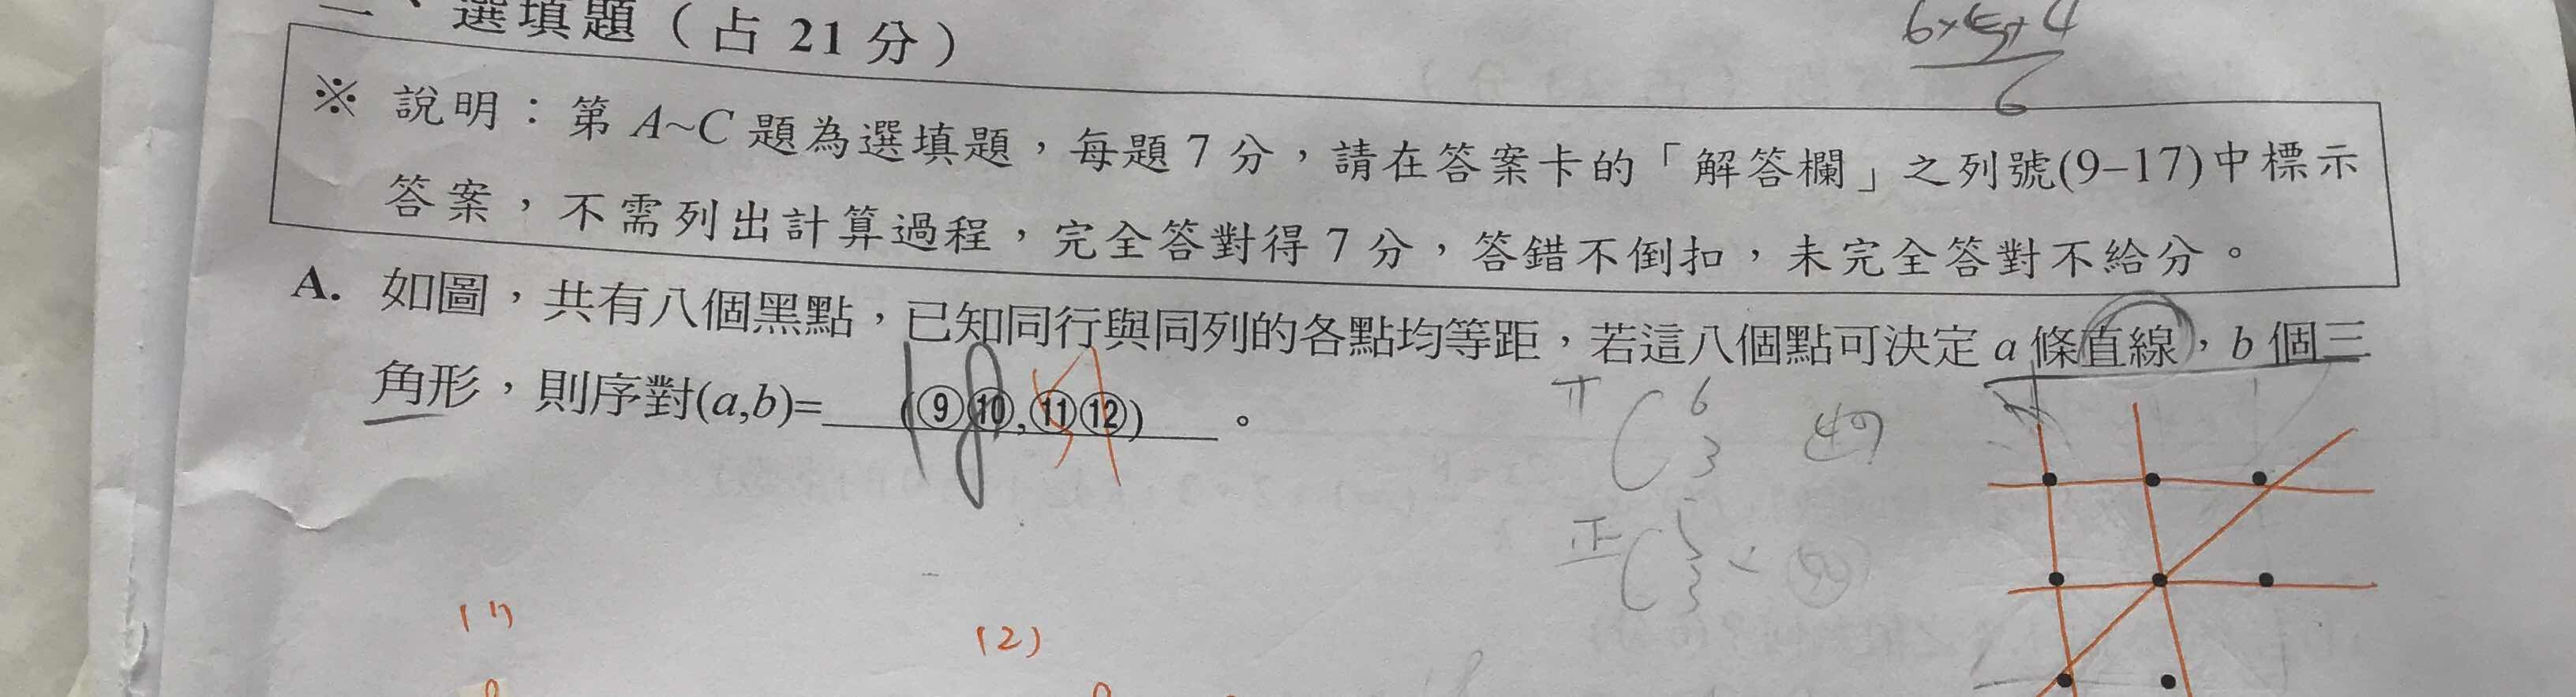 二、選填題（占 21 分）
6×5×4
6
※ 說明：第 A~C 題為選填題，每題 7 分，請在答案卡的「解答欄」之列號(9–17)中標示
答案，不需列出計算過程，完全答對得 7 分，答錯不倒扣，未完全答對不給分。
A. 如圖，共有八個黑點，已知同行與同列的各點均等距，若這八個點可決定 a 條直線，b 個三
角形，則序對(a,b)= (⑨⑩,⑪⑫) 。
18
C 6 3
正
(1)
(2)